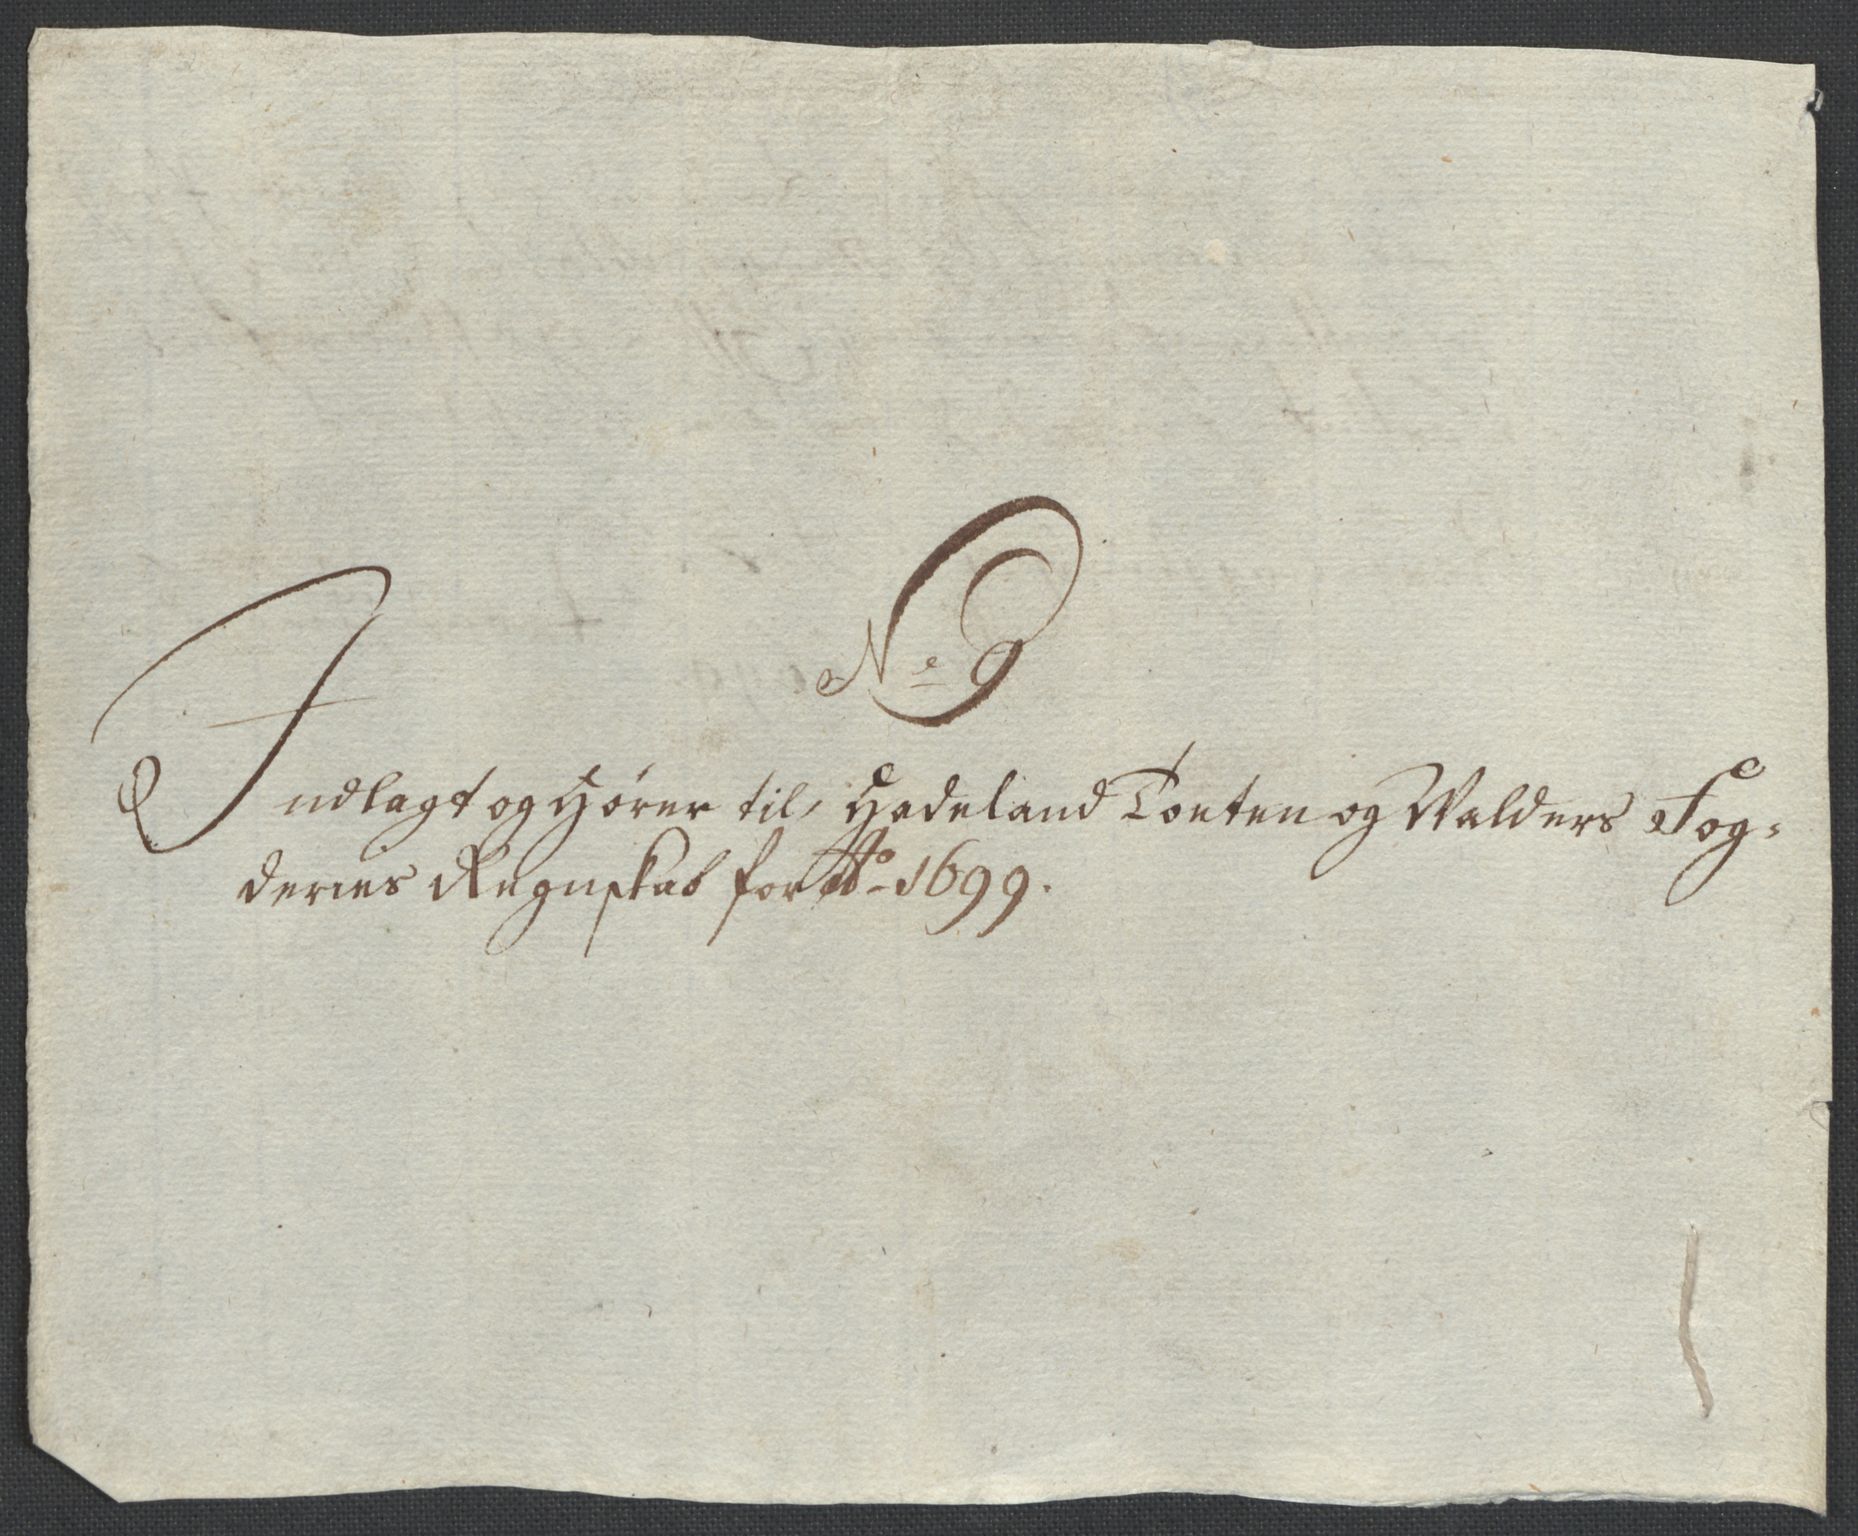 No 9
Indlagt og Hører til, Hadeland Toeten og Walders Fog-
deries Regnskab for Ao 1699.